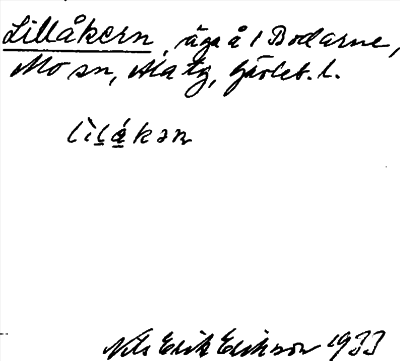 Lillåkern, äga å i Bodarne,
Mo sn, Ala tg, Gävleb. l.
lìlákən
Nils Erik Erikson 1933